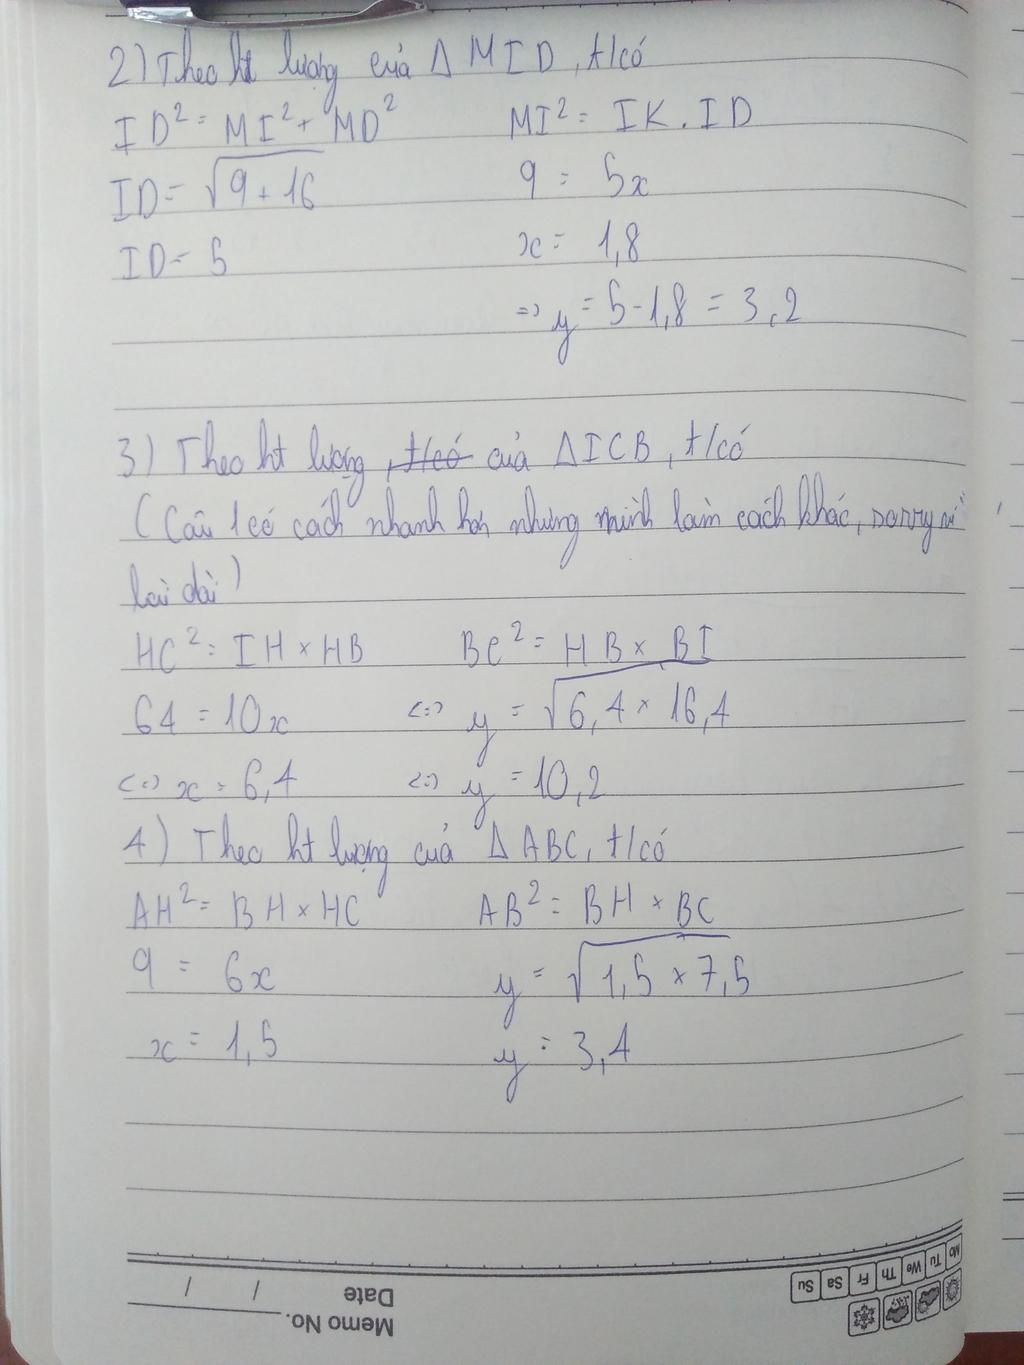 2) Theo ht lượng của Δ MID, t/có
ID² = MI² + MD²
MI² = IK . ID
ID = √9 + 16
9 = 5x
ID = 5
x = 1,8
=> y = 5 - 1,8 = 3,2
3) Theo ht lượng, t/có của ΔICB, t/có
(Câu 1 có cách nhanh hơn nhưng mình làm cách khác, sorry vì
lời dài)
HC² = IH × HB
BC² = HB × BI
64 = 10x
<=> y = √6,4 × 16,4
<=> x = 6,4
<=> y = 10,2
4) Theo ht lượng của Δ ABC, t/có
AH² = BH × HC
AB² = BH × BC
9 = 6x
y = √1,5 × 7,5
x = 1,5
y = 3,4
Memo No.
Date / /
Mo Tu We Th Fr Sa Su